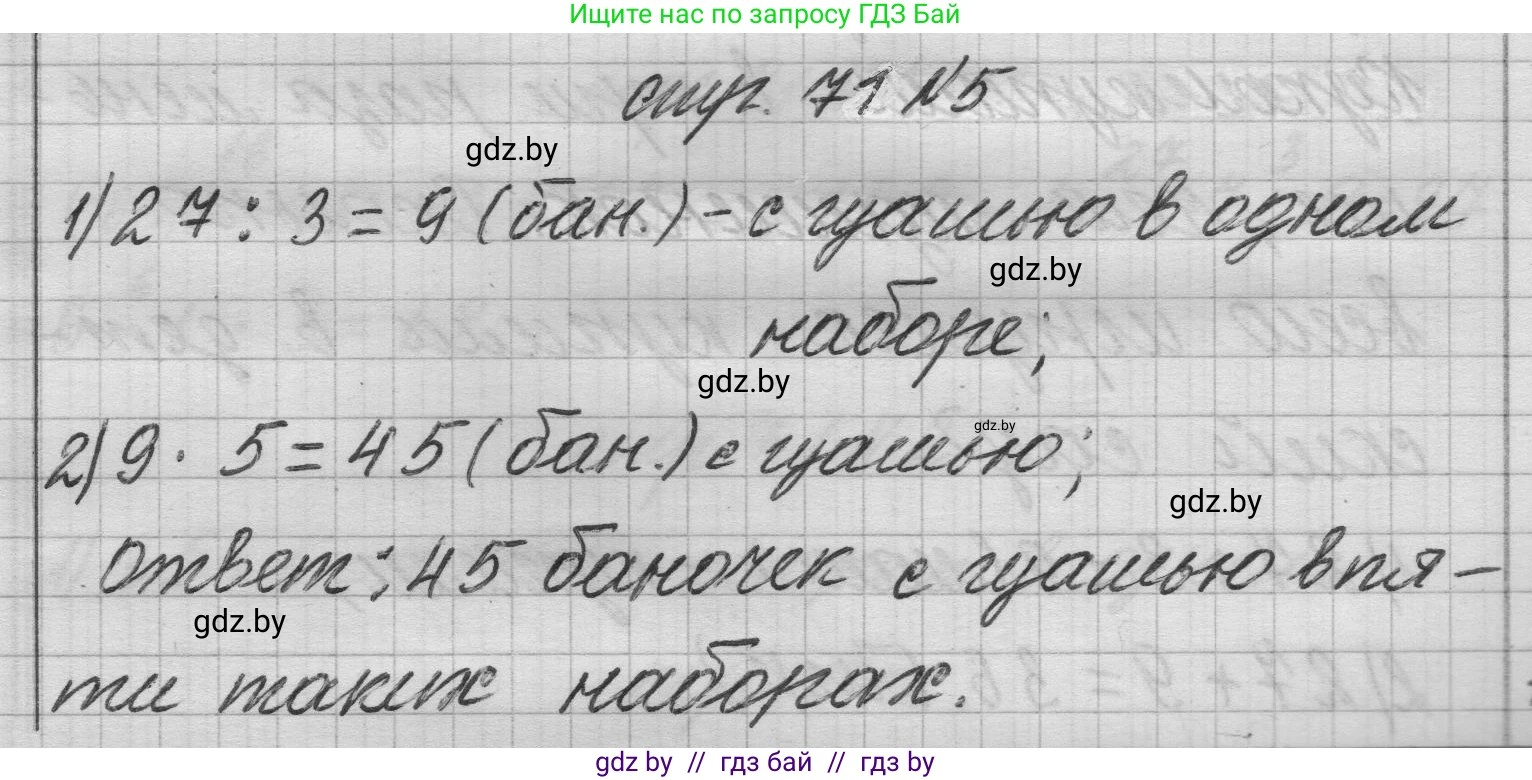 Ищите нас по запросу ГДЗ Бай
стр. 71 №5
gdz.by
1) 27 : 3 = 9 (бан.) - с гуашью в одном
gdz.by
наборе;
gdz.by
2) 9 · 5 = 45 (бан.) с гуашью;
gdz.by
gdz.by
Ответ: 45 баночек с гуашью в пя-
gdz.by
ти таких наборах.
gdz by // гдз бай // гдз by